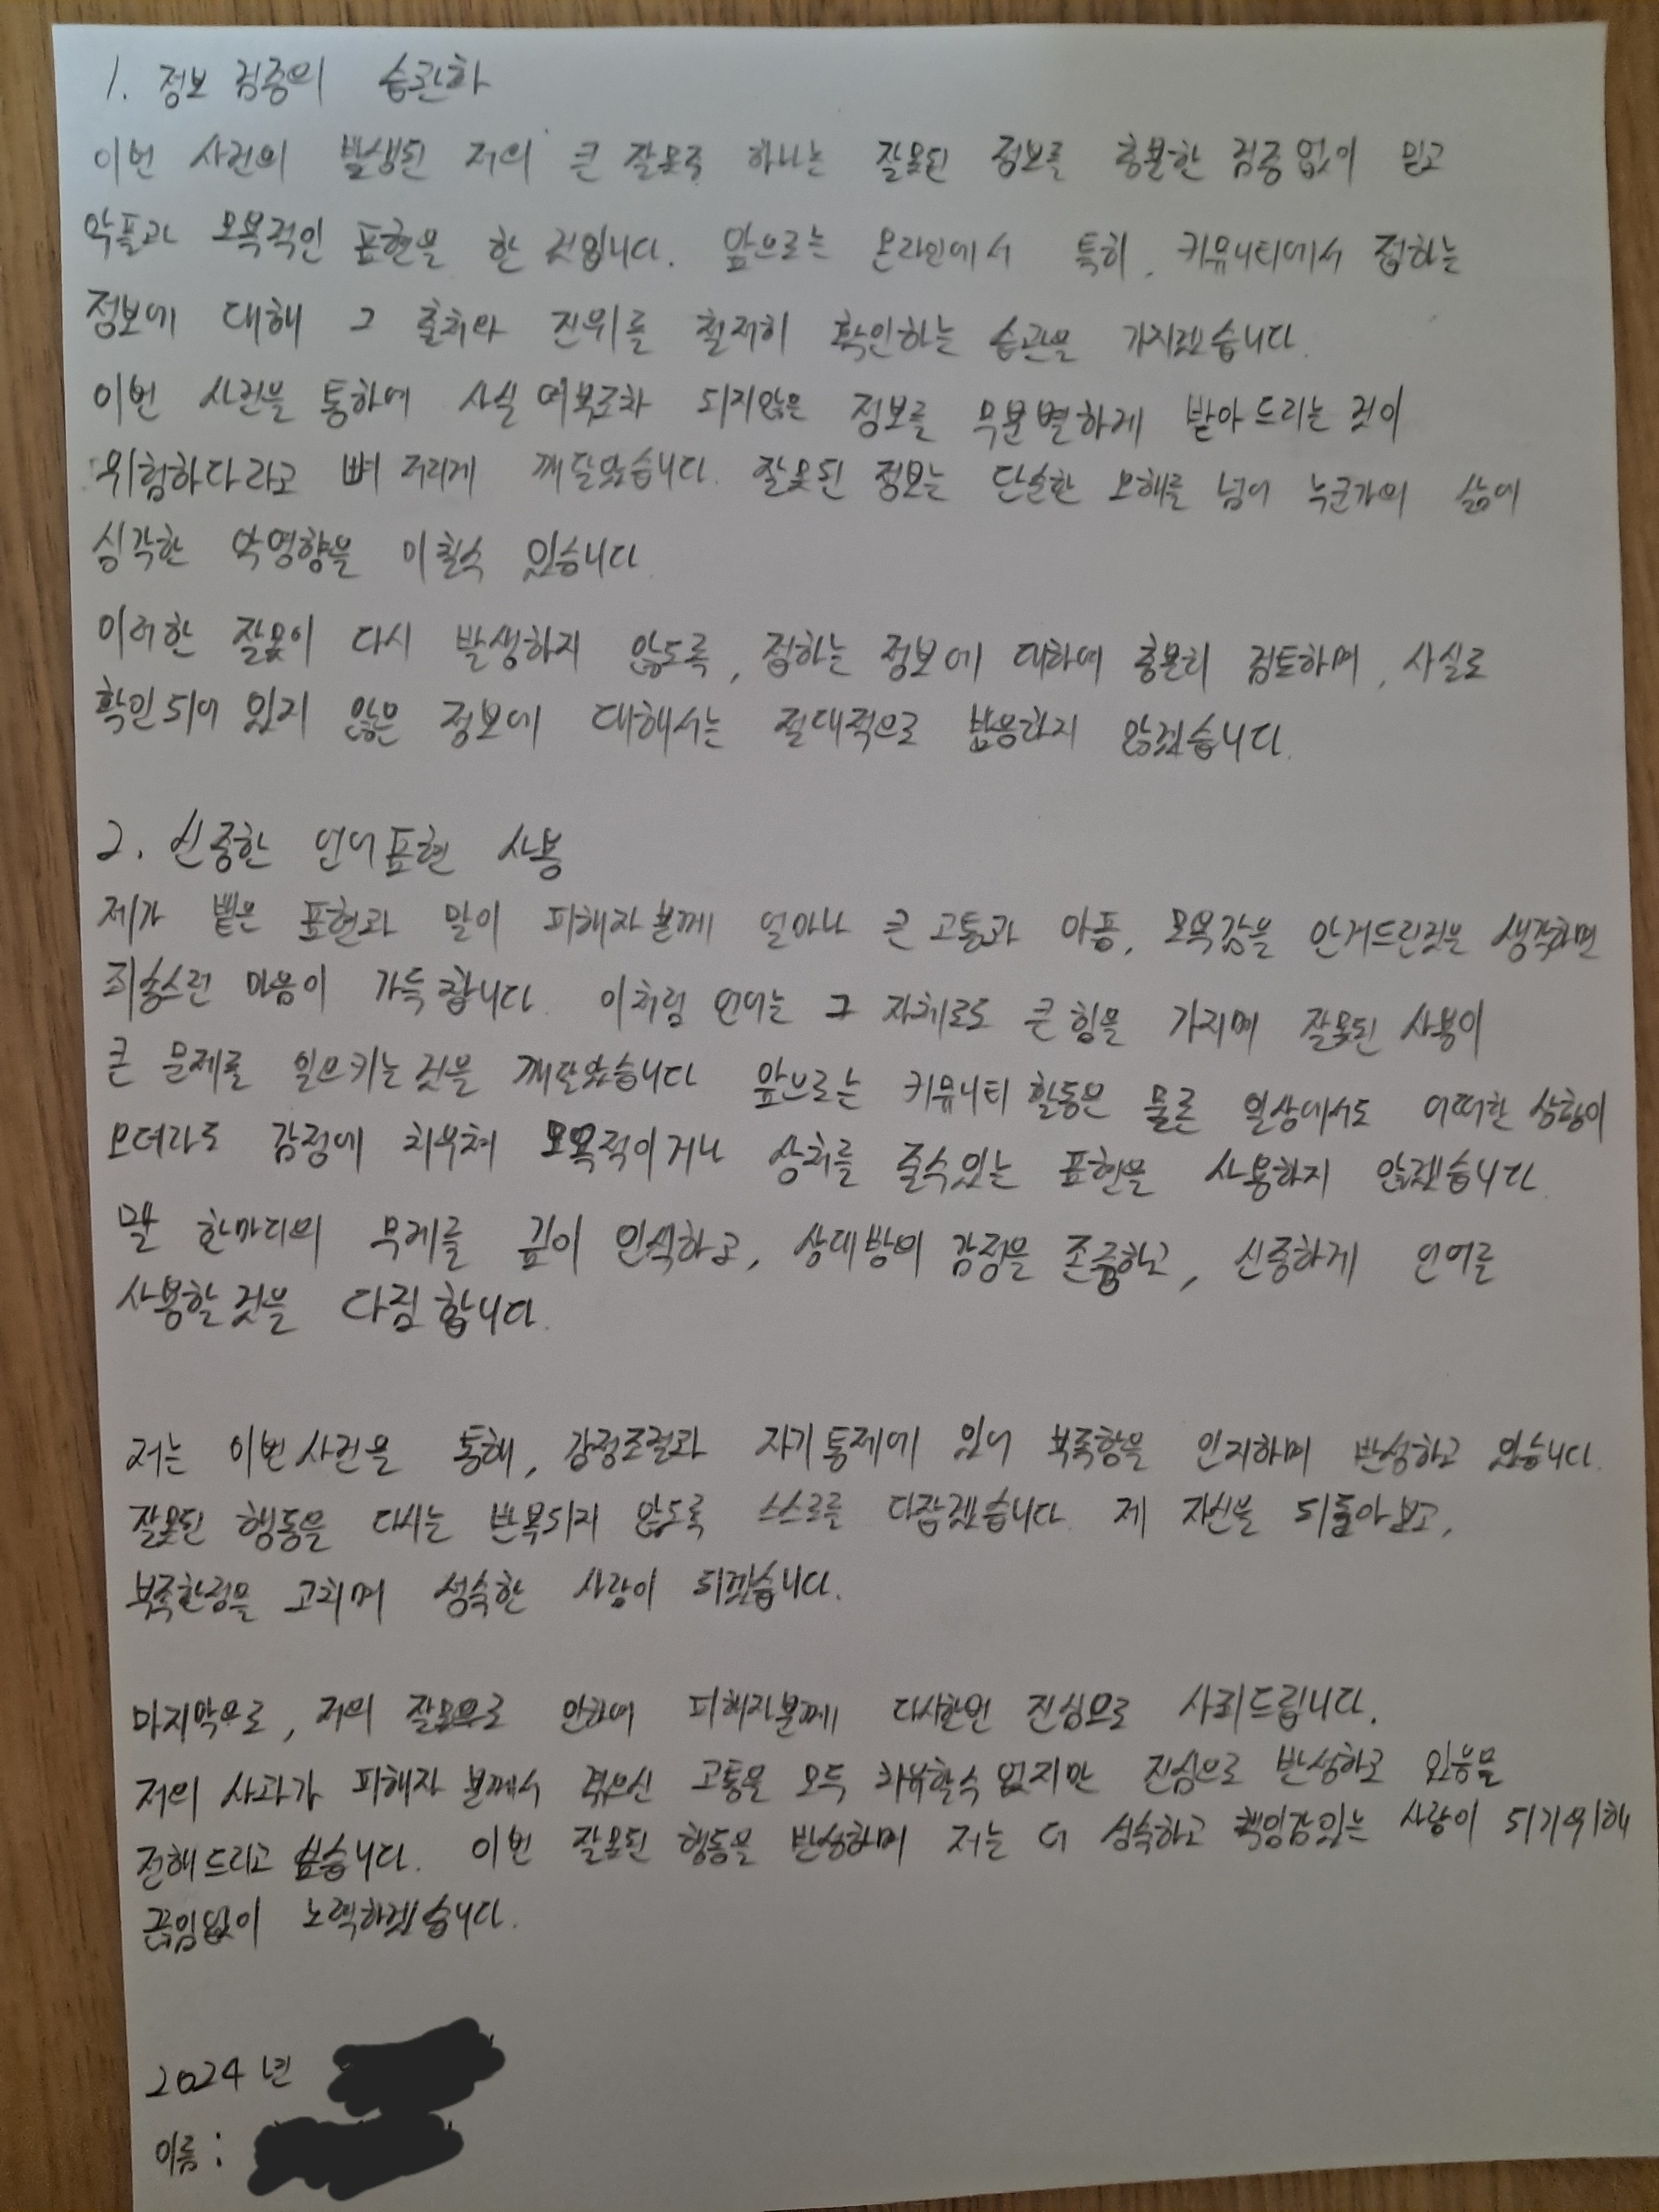 1. 정보 검증의 습관화
이번 사건의 발생된 저의 큰 잘못중 하나는 잘못된 정보를 충분한 검증없이 믿고
악플과 모욕적인 표현을 한 것입니다. 앞으로는 온라인에서 특히, 커뮤니티에서 접하는
정보에 대해 그 출처와 진위를 철저히 확인하는 습관을 가지겠습니다.
이번 사건을 통하여 사실 여부조차 되지않은 정보를 무분별하게 받아드리는 것이
위험하다라고 뼈 저리게 깨달았습니다. 잘못된 정보는 단순한 오해를 넘어 누군가의 삶에
심각한 악영향을 미칠수 있습니다
이러한 잘못이 다시 발생하지 않도록, 접하는 정보에 대하여 충분히 검토하며, 사실로
확인되어 있지 않은 정보에 대해서는 절대적으로 반응하지 않겠습니다.
2. 신중한 언어표현 사용
제가 뱉은 표현과 말이 피해자분께 얼마나 큰 고통과 아픔, 모욕감을 안겨드린것을 생각하면
죄송스런 마음이 가득합니다. 이처럼 언어는 그 자체로도 큰 힘을 가지며 잘못된 사용이
큰 문제를 일으키는것을 깨달았습니다 앞으로는 커뮤니티 활동은 물론 일상에서도 어떠한 상황이
오더라도 감정에 치우쳐 모욕적이거나 상처를 줄수있는 표현을 사용하지 않겠습니다.
말 한마디의 무게를 깊이 인식하고, 상대방의 감정을 존중하고, 신중하게 언어를
사용할것을 다짐합니다.
저는 이번사건을 통해, 감정조절과 자기통제에 있어 부족함을 인지하며 반성하고 있습니다.
잘못된 행동을 다시는 반복되지 않도록 스스로를 다잡겠습니다. 제 자신을 되돌아보고,
부족한점을 고치며 성숙한 사람이 되겠습니다.
마지막으로, 저의 잘못으로 인하여 피해자분께 다시한번 진심으로 사죄드립니다.
저의 사과가 피해자 분께서 겪으신 고통을 모두 치유할수 없지만 진심으로 반성하고 있음을
전해드리고 싶습니다. 이번 잘못된 행동을 반성하며 저는 더 성숙하고 책임감있는 사람이 되기위해
끊임없이 노력하겠습니다.
2024년
이름 :